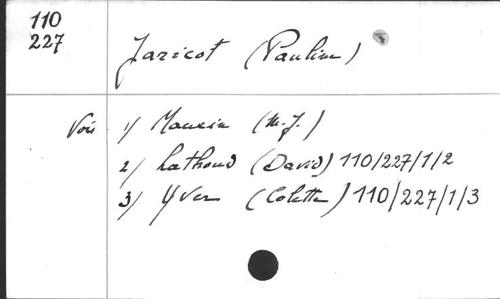 110
227
Jaricot (Pauline)
Vois 1/ Maurin (M.J.)
2/ Lathoud (David) 110/227/1/2
3/ Yver (Colette) 110/227/1/3